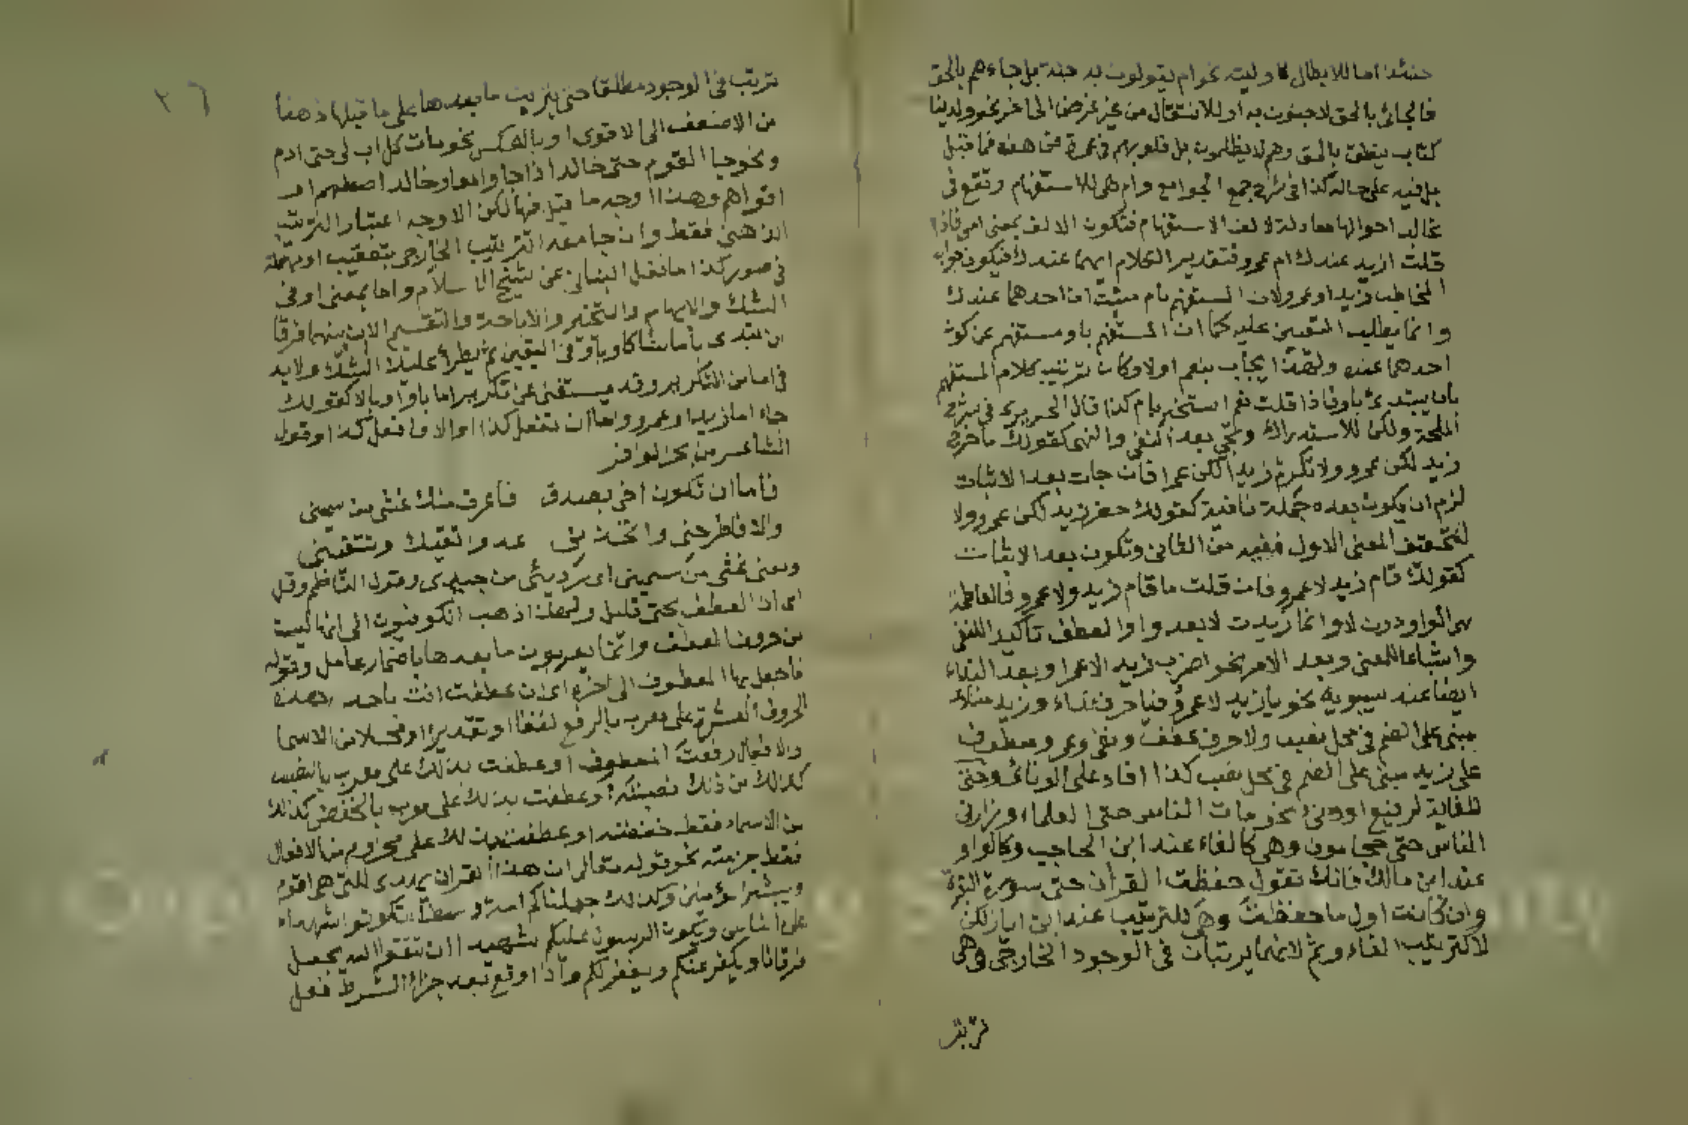 حينئذ اما للابطال كاوليته نحو ام يقولون به جنة بل جاءهم بالحق
فالجائي بالحق لا جنون به او للانتقال من غير غرض الى اخر نحو ولدينا
كتاب ينطق بالحق وهم لا يظلمون بل قلوبهم في غمرة من هذا فما قبل
بل فيه على حاله كذا في شرح جمع الجوامع وام هي للاستفهام وتقع في
غالب احوالها معادلة لالف الاستفهام فتكون الالف بمعنى اي فاذا
قلت ازيد عندك ام عمرو فتقدير الكلام ايهما عندك فيكون جواب
المخاطب زيد او عمرو لان المستفهم بام مثبت ان احدهما عندك
وانما يطلب التعيين عليه كما ان المستفهم باو مستفهم عن كون
احدهما عنده ولهذا يجاب بنعم اولا وكان ترتيب كلام المستفهم
بان يبتدئ باو فاذا قلت نعم استخبر بام كذا قال الحريري في شرح
الملحة ولكن للاستدراك وتجي بعد النفي والنهي كقولك ما خرج
زيد لكن عمرو ولا تكرم زيدا لكن عمرا فان جات بعد الاثبات
لزم ان يكون بعده جملة نافية كقولك حضر زيد لكن عمرو ولا
المعنى الاول من الثاني وتكون بعد الاثبات
كقولك قام زيد لا عمرو فان قلت ما قام زيد ولا عمرو فالعاطف
هي الواو دون لا وانما زيدت لا بعد واو العطف تاكيد اللنفي
واشباعا للمعنى وبعد الامر نحو اضرب زيد الاعمرا وبعد النداء
ايضا عند سيبويه نحو يا زيد لا عمرو فيا حرف نداء وزيد مناد
مبني على الضم في محل نصب ولا حرف عطف ونفي وعمرو معطوف
على زيد مبني على الضم في محل نصب كذا افاد على الونائي وحتى
للغاية لرفيع او دني نحو مات الناس حتى العلماء وزارني
الناس حتى حجامون وهي كالفاء عند ابن الحاجب وكالواو
عند ابن مالك فانك تقول حفظت القرآن حتى سورة البقرة
وان كانت اول ما حفظت وهي للترتيب عند ابن اياز لكن
لا كترتيب الفاء وثم لانهما يرتبان في الوجود الخارجي وهي
ترتب
٢٦
ترتب في الوجود مطلقا حتى ما بعدها على ما قبلها ذهنا
من الاضعف الى الاقوى او بالعكس نحو مات كل اب لي حتى ادم
ونحو جا القوم حتى خالد اذا جاوا معا وخالد اضعفهم او
اقواهم وهذا اوجه ما قيل فيها لكن الاوجه اعتبار الترتيب
الذهني فقط وان جامعه الترتيب الخارجي بتعقيب او مهملة
في صور كذا ما نقل عن شيخ الاسلام واما بمعنى او في
الشك والابهام والتخير والاباحة والتقسيم الا ان بينهما فرقا
ان تبتدى باما شاكا وباو في اليقين ثم يطرأ عليك الشك ولا بد
في اما من التكرير وقد يستغنى عن تكرير اما باو او بالا كقولك
جاء اما زيد او عمرو واما ان تفعل كذا والا وافعل كذا وقول
الشاعر من بحر الوافر
فاما ان تكون اخي بصدق فاعرف منك غثي من سميني
والا فاطرحني واتخذني عدوا اتقيك وتتقيني
ومعنى غثي من سميني اي رديئي من جيدي وقول الناظم وقل
اي ان العطف بحتى قليل ولهذا ذهب الكوفيون الى انها ليست
من حروف العطف وانما يعربون ما بعدها باضمار عامل وقوله
فاجعل بها المعطوف الى اخره اي ان عطفت انت باحد هذه
الحروف العشرة على معرب بالرفع لفظا او تقديرا او محلا من الاسما
والافعال رفعت المعطوف او عطفت بذلك على معرب بالنصب
كذلك من ذلك نصبته او عطفت بذلك على معرب بالخفض كذلك
من الاسماء فقط خفضته او عطفت بذلك على مجزوم من الافعال
فقط جزمته نحو قوله تعالى ان هذا القران يهدي للتي هي اقوم
ويبشر المؤمنين وكذلك جعلناكم امة وسطا لتكونوا شهداء
على الناس ويكون الرسول عليكم شهيدا ان تتقوا الله يجعل
فرقانا ويكفر عنكم ويغفر لكم واذا وقع بعد جزاء الشرط فعل